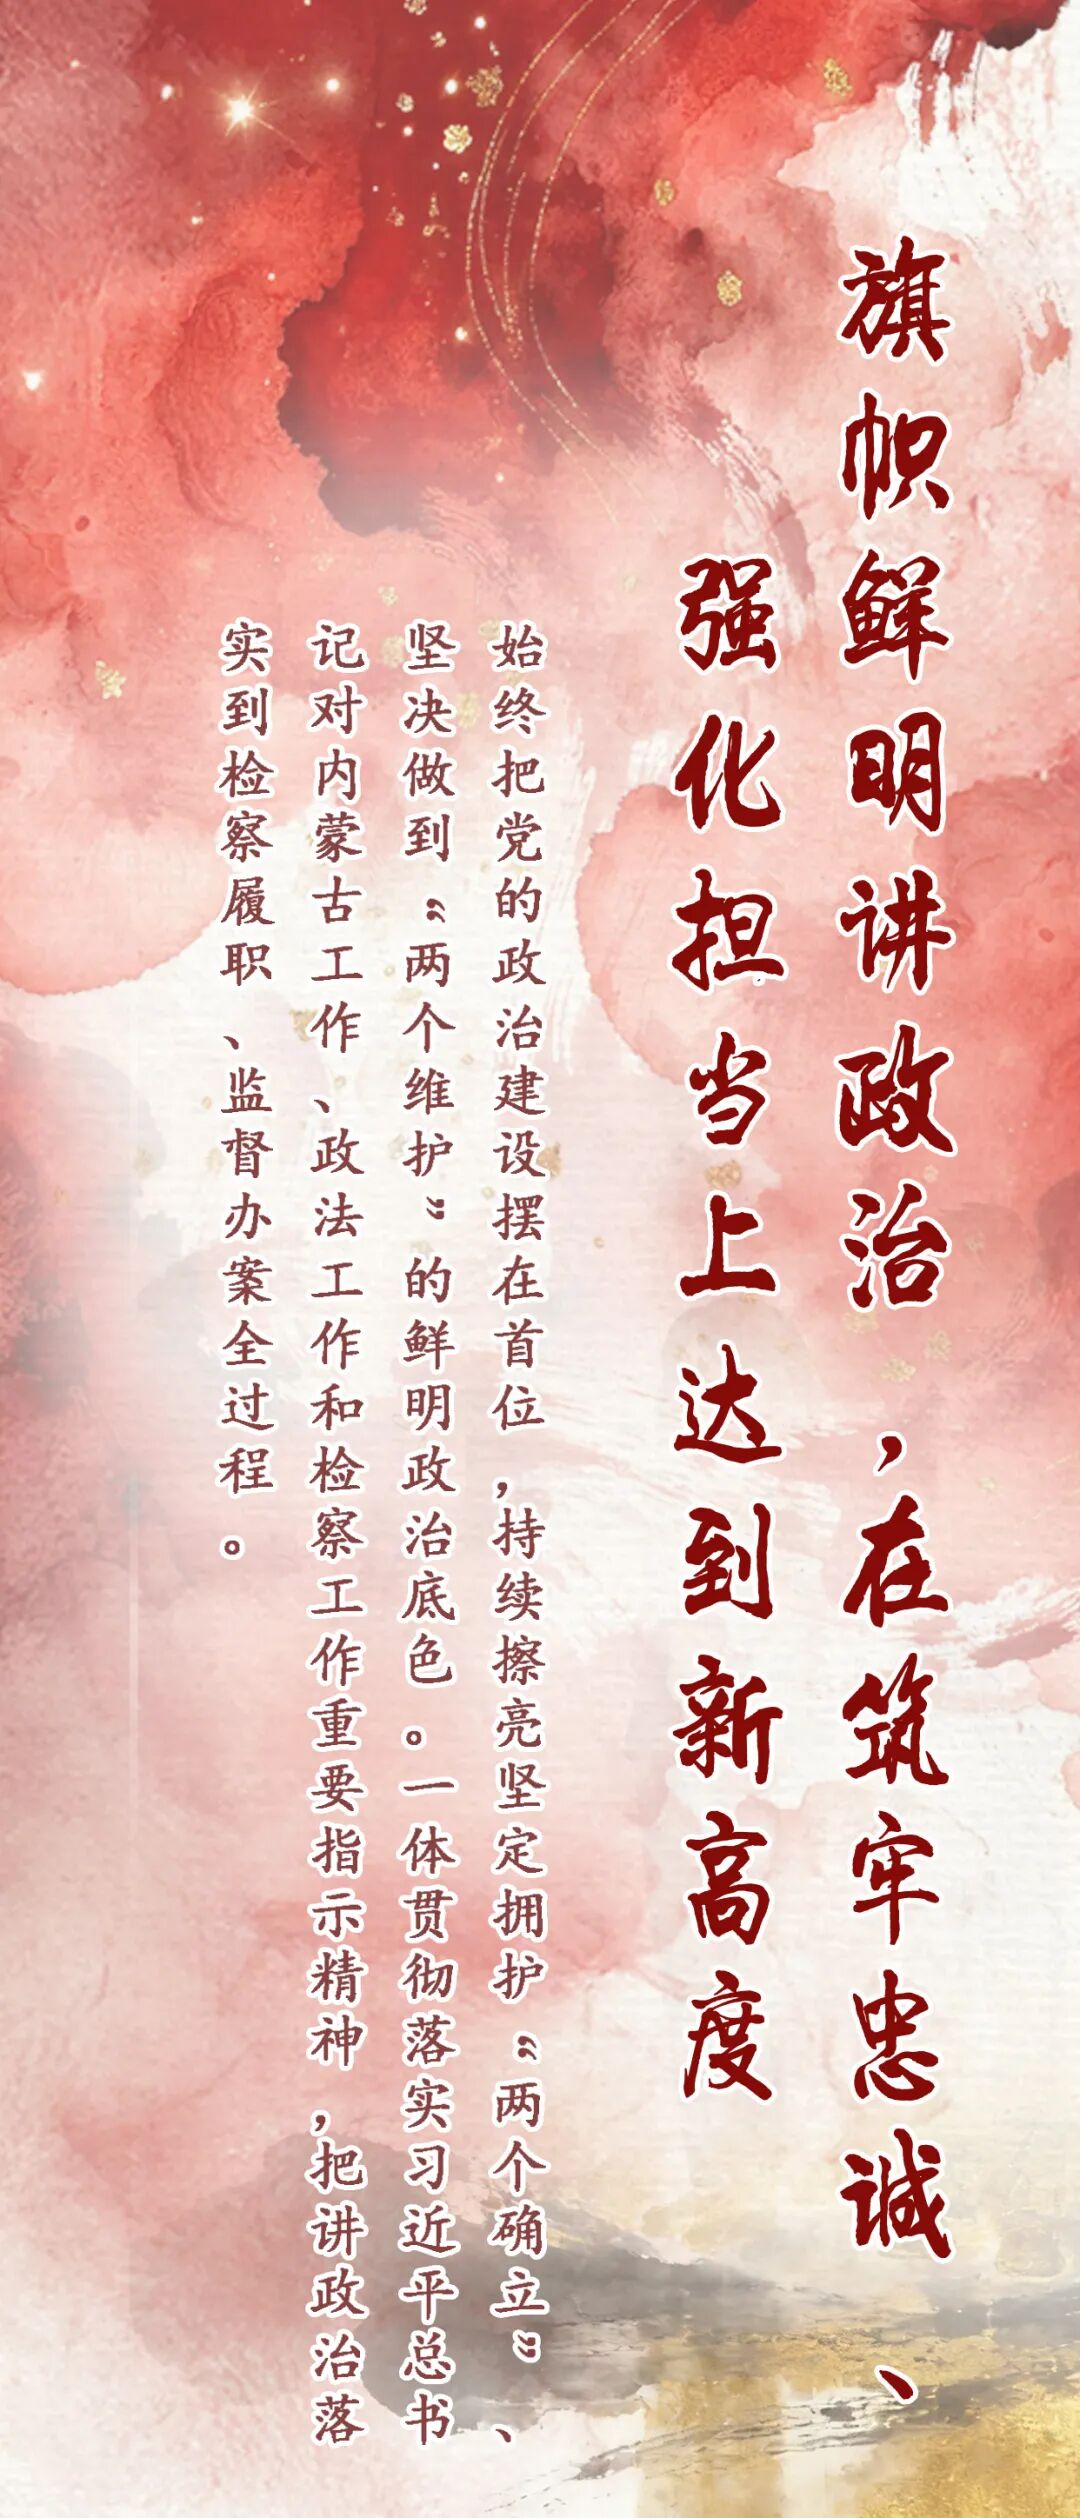 旗帜鲜明讲政治，在筑牢忠诚、
强化担当上达到新高度
始终把党的政治建设摆在首位，持续擦亮坚定拥护“两个确立”、
坚决做到“两个维护”的鲜明政治底色。一体贯彻落实习近平总书
记对内蒙古工作、政法工作和检察工作重要指示精神，把讲政治落
实到检察履职、监督办案全过程。